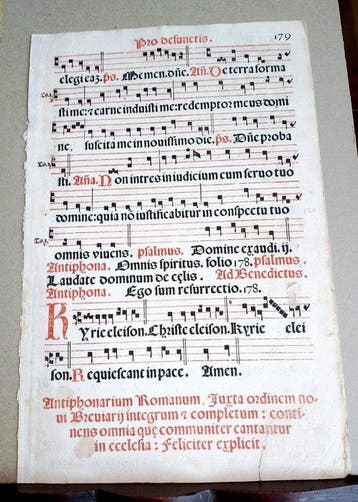 Pro defunctis. 179
elegi eaʒ. ps. Memen. dñe. Añ. De terra forma
sti me: ⁊ carne induisti me: redemptor meus domi
ne, suscita me in nouissimo die. ps. Dñe proba
sti. Aña. Non intres in iudicium cum seruo tuo
domine: quia nõ iustificabitur in conspectu tuo
omnis viuens. psalmus. Domine exaudi. ij.
Antiphona. Omnis spiritus. folio 178. psalmus.
Laudate dominum de celis. Ad Benedictus.
Antiphona. Ego sum resurrectio. 178.
Kyrie eleison. Christe eleison. Kyrie elei
son. Requiescant in pace. Amen.
Antiphonarium Romanum. Juxta ordinem no-
ui Breuiarij integrum ⁊ completum: conti-
nens omnia que communiter cantantur
in ecclesia: Feliciter explicit.